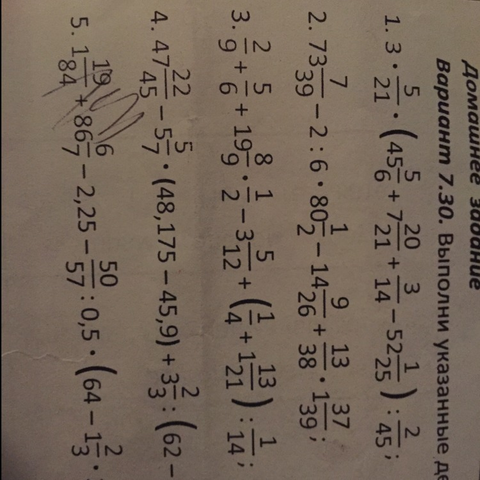 Домашнее задание
Вариант 7.30. Выполни указанные де
1. 3 · 5/21 · (45 5/6 + 7 20/21 + 3/14 − 52 1/25) : 2/45;
2. 73 7/39 − 2 : 6 · 80 1/2 − 14 9/26 + 13/38 · 1 37/39;
3. 2/9 + 5/6 + 19 8/9 · 1/2 − 3 5/12 + (1/4 + 1 13/21) : 1/14;
4. 47 22/45 − 5 5/7 · (48,175 − 45,9) + 3 2/3 : (62 −
5. 1 19/84 + 86 6/7 − 2,25 − 50/57 : 0,5 · (64 − 1 2/3 ·